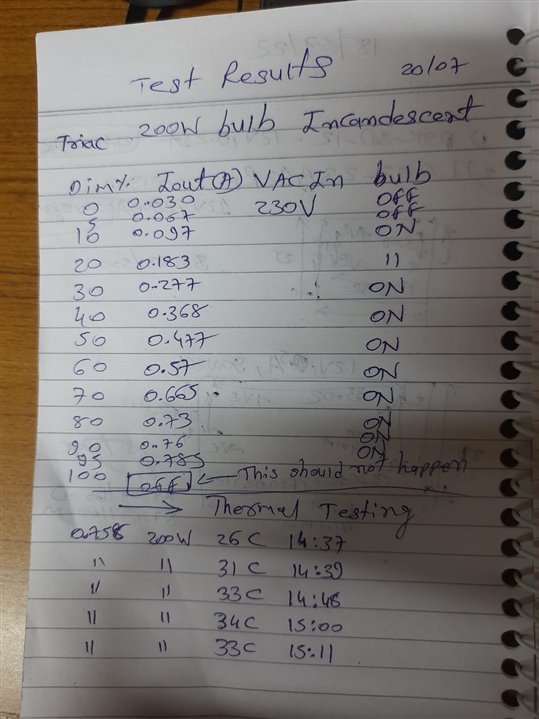 Test Results 20/07
Triac 200W bulb Incandescent
Dim% Iout(A) VAC In bulb
0 0.030 230V OFF
5 0.067 OFF
10 0.097 ON
20 0.183 "
30 0.277 ON
40 0.368 ON
50 0.477 ON
60 0.57 ON
70 0.665 ON
80 0.73 ON
90 0.76 ON
95 0.785 ON
100 off ← This should not happen
→ Thermal Testing
0.758 200W 26C 14:37
" " 31C 14:39
" " 33C 14:48
" " 34C 15:00
" " 33C 15:11